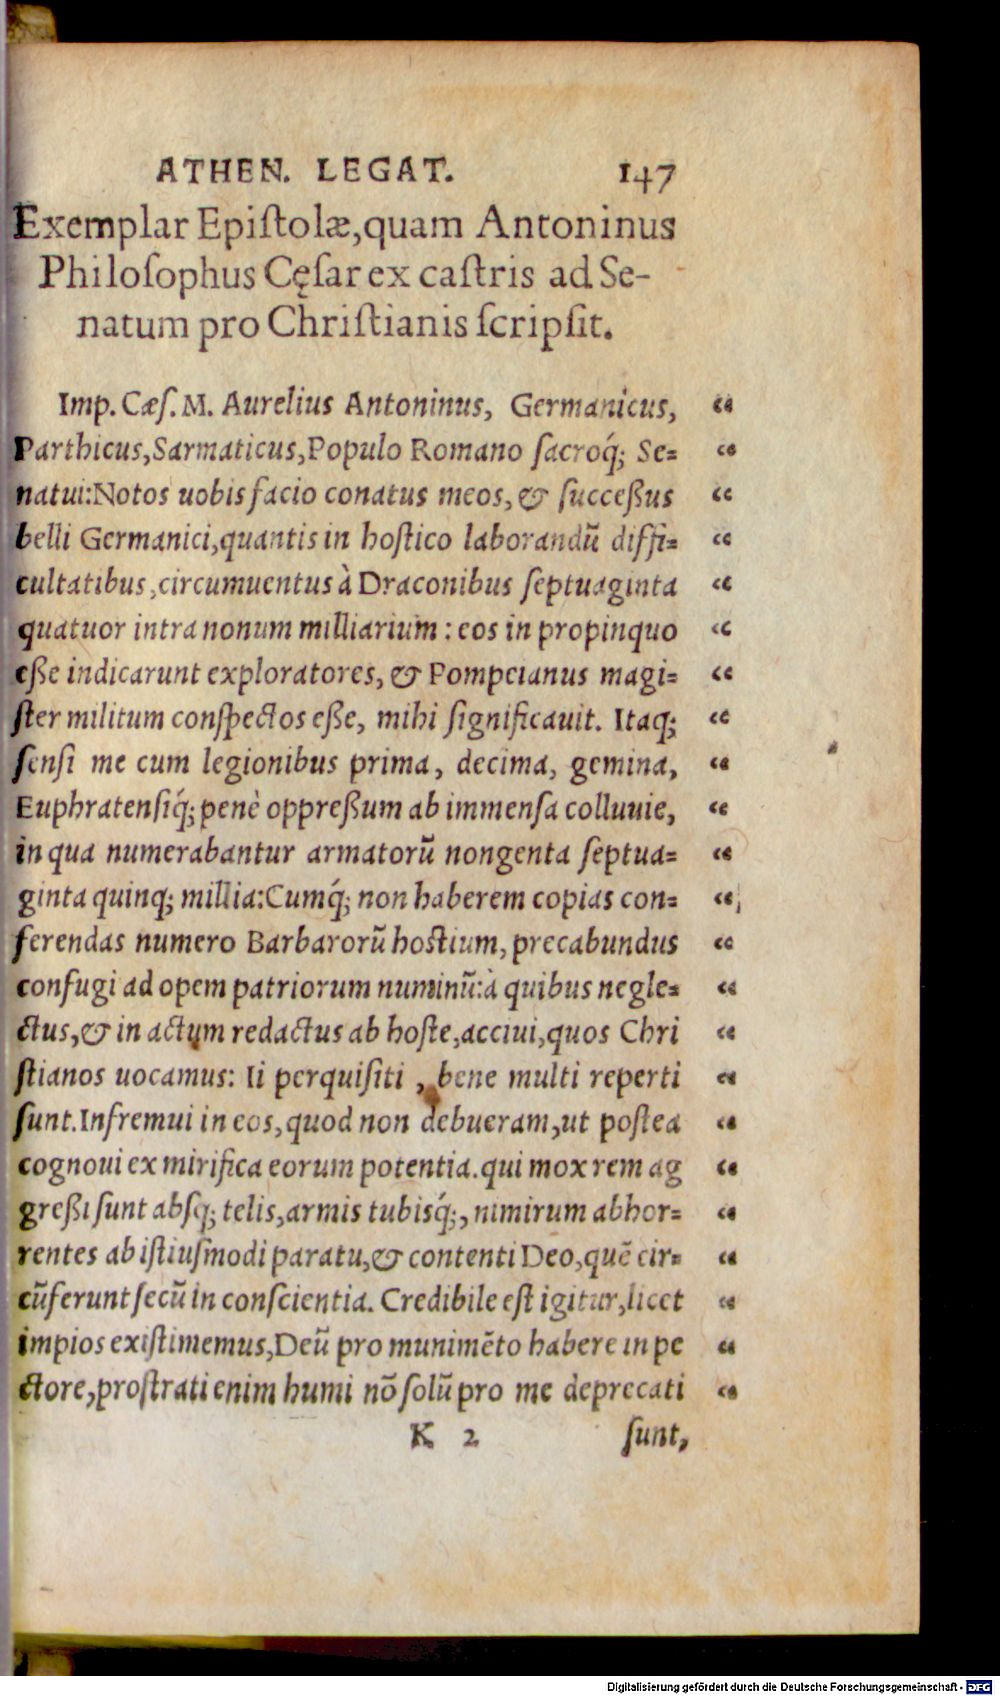 ATHEN. LEGAT. 147
Exemplar Epiſtolæ, quam Antoninus
Philoſophus Cęſar ex caſtris ad Se-
natum pro Chriſtianis ſcripſit.
Imp. Cæſ. M. Aurelius Antoninus, Germanicus, “
Parthicus, Sarmaticus, Populo Romano ſacroq́; Se= “
natui: Notos uobis facio conatus meos, & ſucceßus “
belli Germanici, quantis in hoſtico laborandũ diffi= “
cultatibus, circumuentus à Draconibus ſeptuaginta “
quatuor intra nonum milliarium : eos in propinquo “
eße indicarunt exploratores, & Pompeianus magi= “
ſter militum conſpectos eße, mihi ſignificauit. Itaq; “
ſenſi me cum legionibus prima, decima, gemina, “
Euphratenſiq́; penè oppreßum ab immenſa colluuie, “
in qua numerabantur armatorũ nongenta ſeptua= “
ginta quinq; millia: Cumq́; non haberem copias con= “
ferendas numero Barbarorũ hoſtium, precabundus “
confugi ad opem patriorum numinũ: à quibus negle= “
ctus, & in actum redactus ab hoſte, acciui, quos Chri “
ſtianos uocamus: Ii perquiſiti , bene multi reperti “
ſunt. Infremui in eos, quod non debueram, ut poſtea “
cognoui ex mirifica eorum potentia. qui mox rem ag “
greßi ſunt abſq; telis, armis tubisq́;, nimirum abhor= “
rentes ab iſtiuſmodi paratu, & contenti Deo, quẽ cir= “
cũferunt ſecũ in conſcientia. Credibile eſt igitur, licet “
impios exiſtimemus, Deũ pro munimẽto habere in pe “
ctore, proſtrati enim humi nõ ſolũ pro me deprecati “
K 2 ſunt,
Digitalisierung gefördert durch die Deutsche Forschungsgemeinschaft - DFG